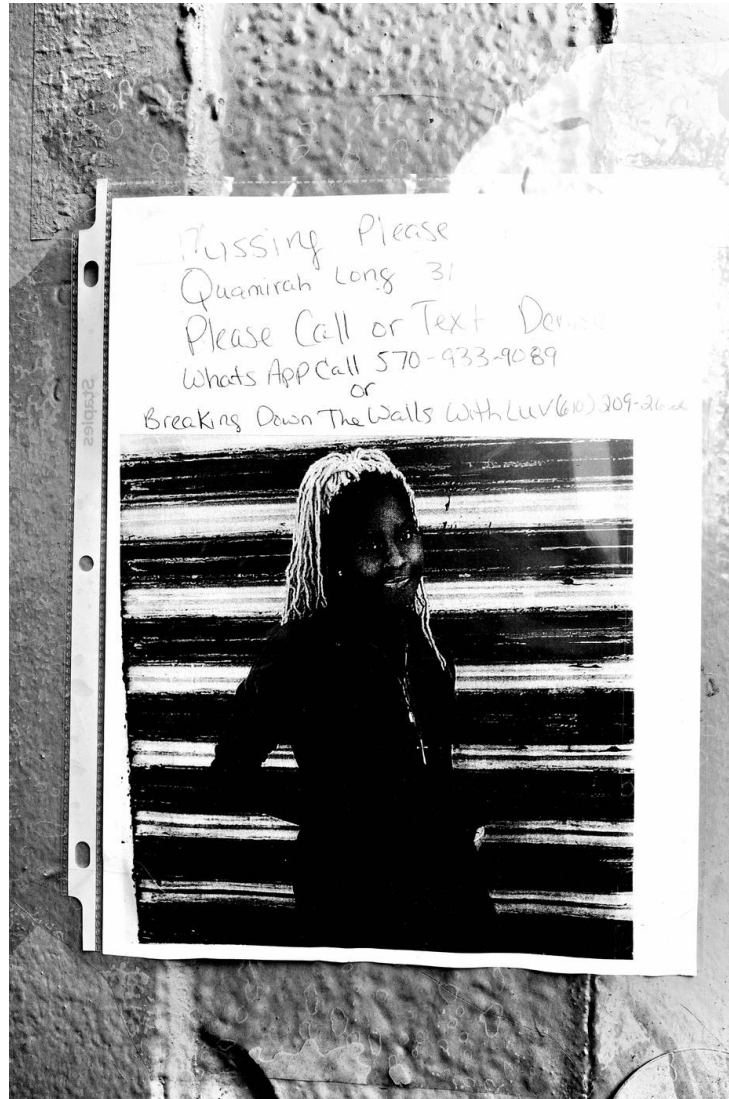 Missing Please
Quamirah Long 31
Please Call or Text
Whats App Call 570-933-9089
or
Breaking Down The Walls With Luv (610) 209-26
Staples